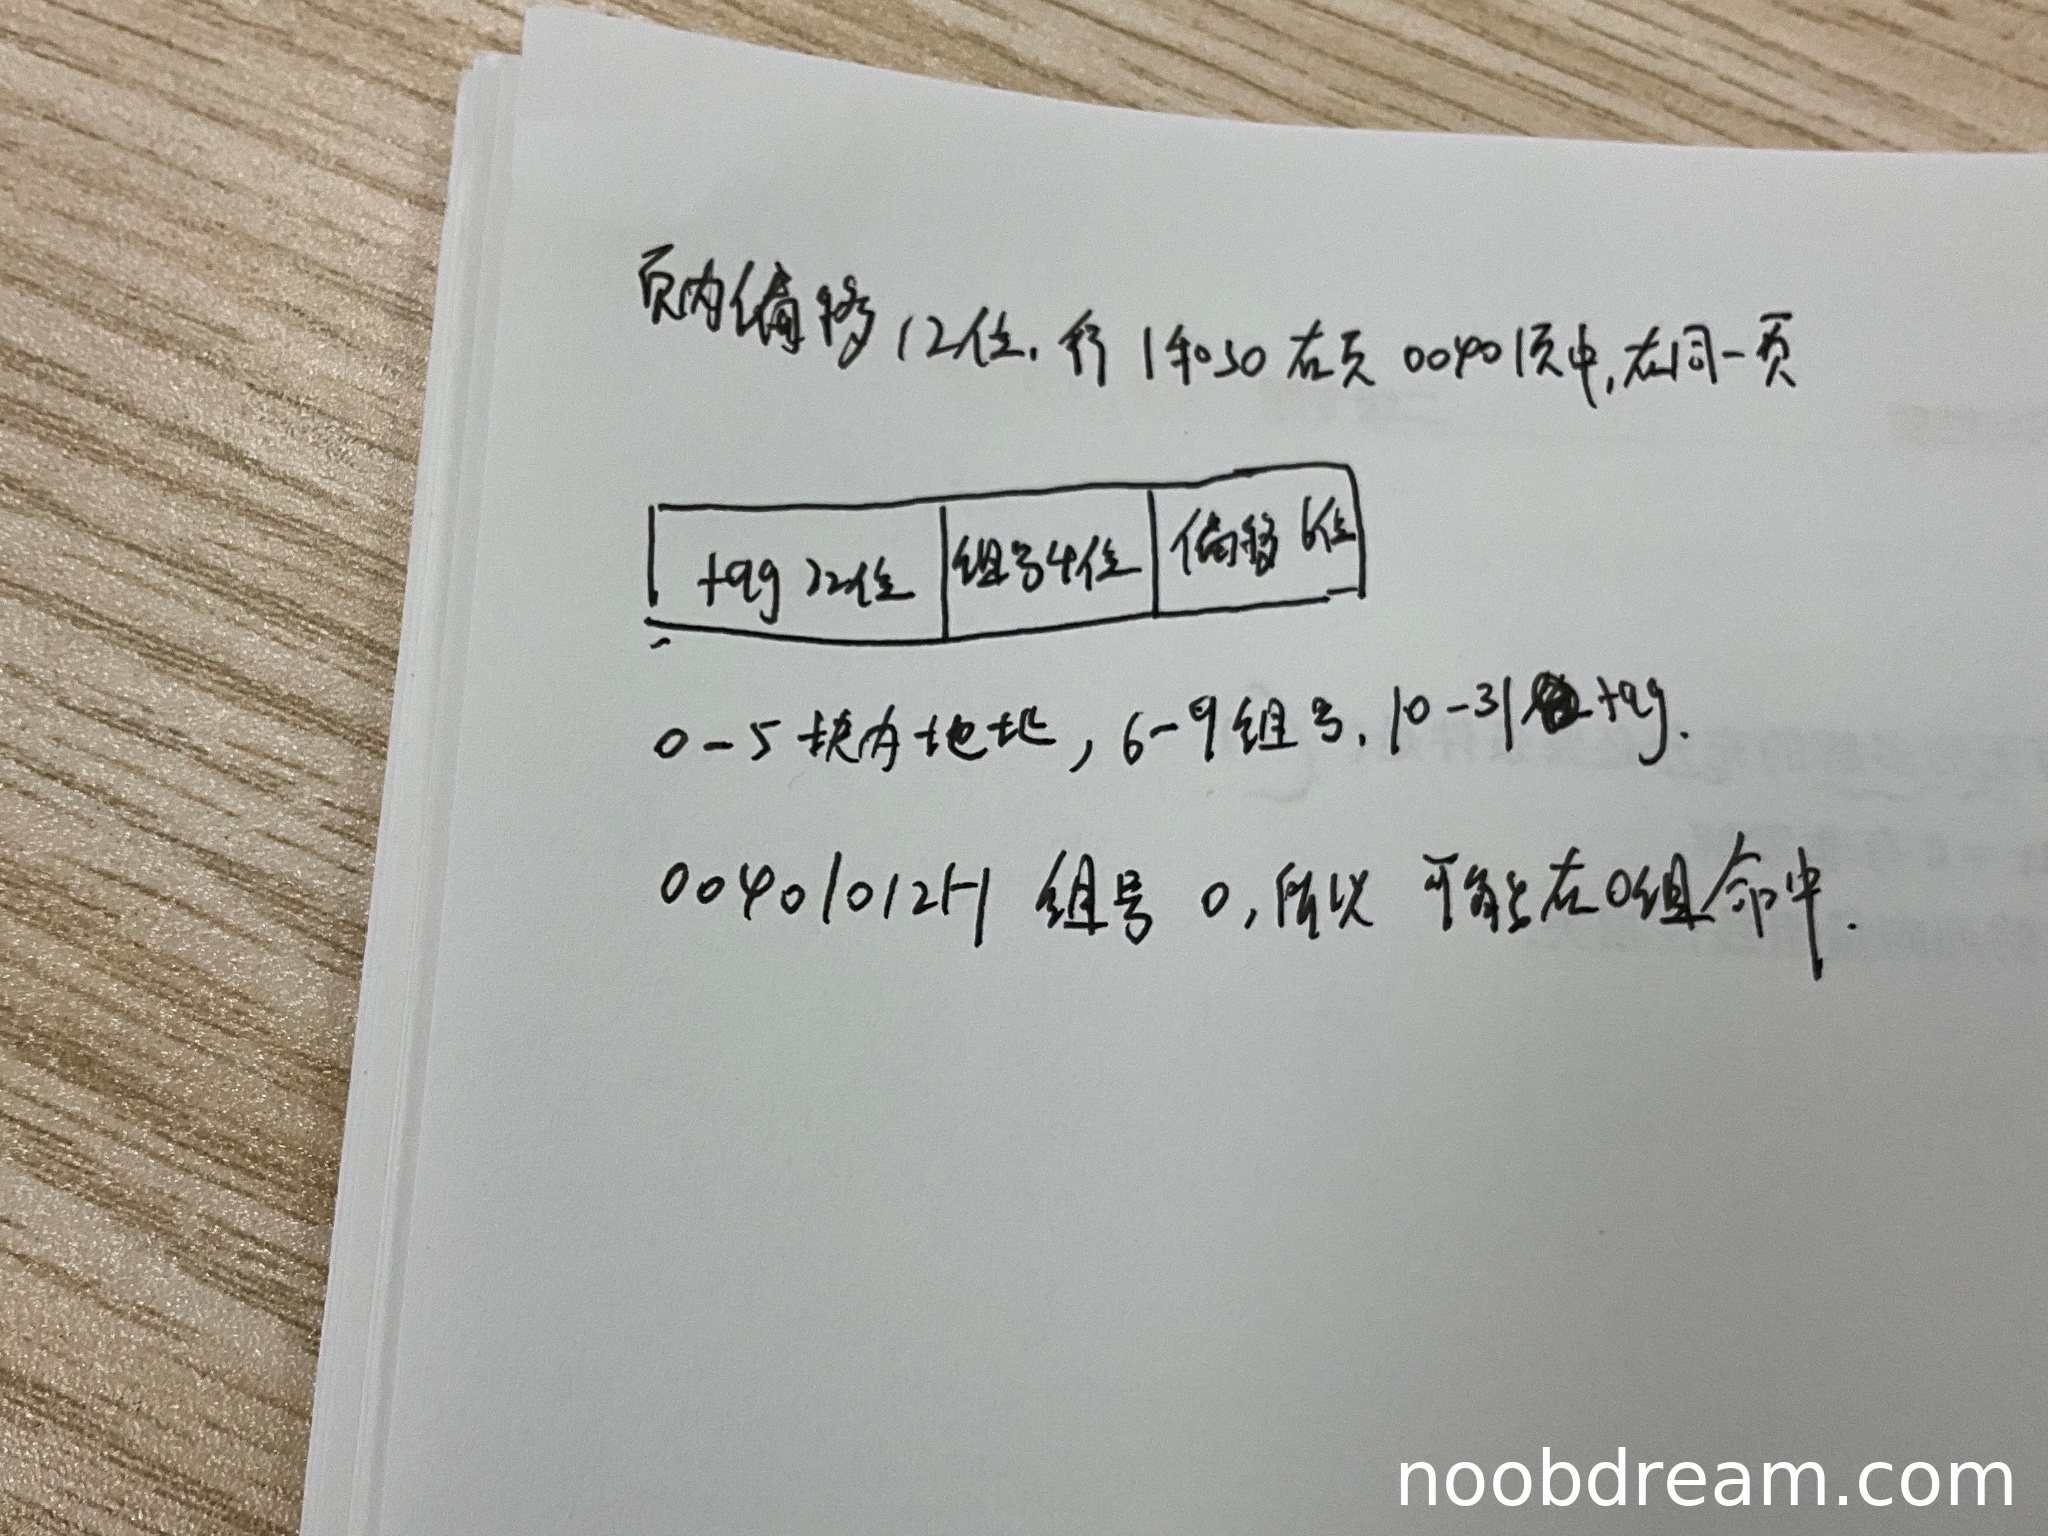 页内偏移12位. 行1和30在页00401页中,在同一页
tag 22位 组号4位 偏移 6位
0-5块内地址, 6-9组号. 10-31 tag.
00401012H 组号 0,所以 可能在0组命中.
noobdream.com